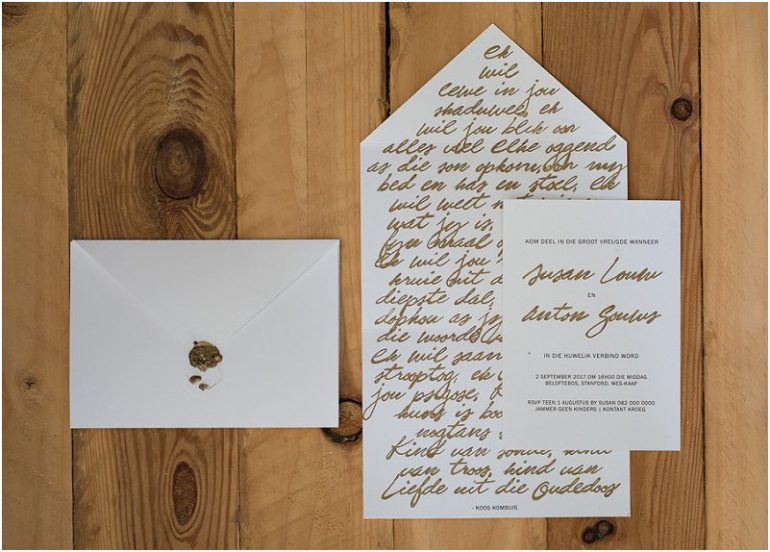 Ek
wil
eewe in jou
skaduwee, ek
wil jou blik oor
alles veel Elke oggend
as die son opkom, oor my
bed en kas en stoel, Ek
wil weet
wat jy is,
Ek wil jou
kruie uit d
diepste dal,
dophou as jy
die woorde
Ek wil saam
strooptog, ek
jou
kuns is
nogtans
Kind van sonde, kind
van troos, kind van
Liefde uit die Oudedoos
- KOOS KOMBUIS
KOM DEEL IN DIE GROOT VREUGDE WANNEER
Susan Louw
EN
Anton Gouws
IN DIE HUWELIK VERBIND WORD
2 SEPTEMBER 2017 OM 16H00 DIE MIDDAG
BELOFTEBOS, STANFORD, WES-KAAP
RSVP TEEN 1 AUGUSTUS BY SUSAN 082 000 0000
JAMMER GEEN KINDERS | KONTANT KROEG